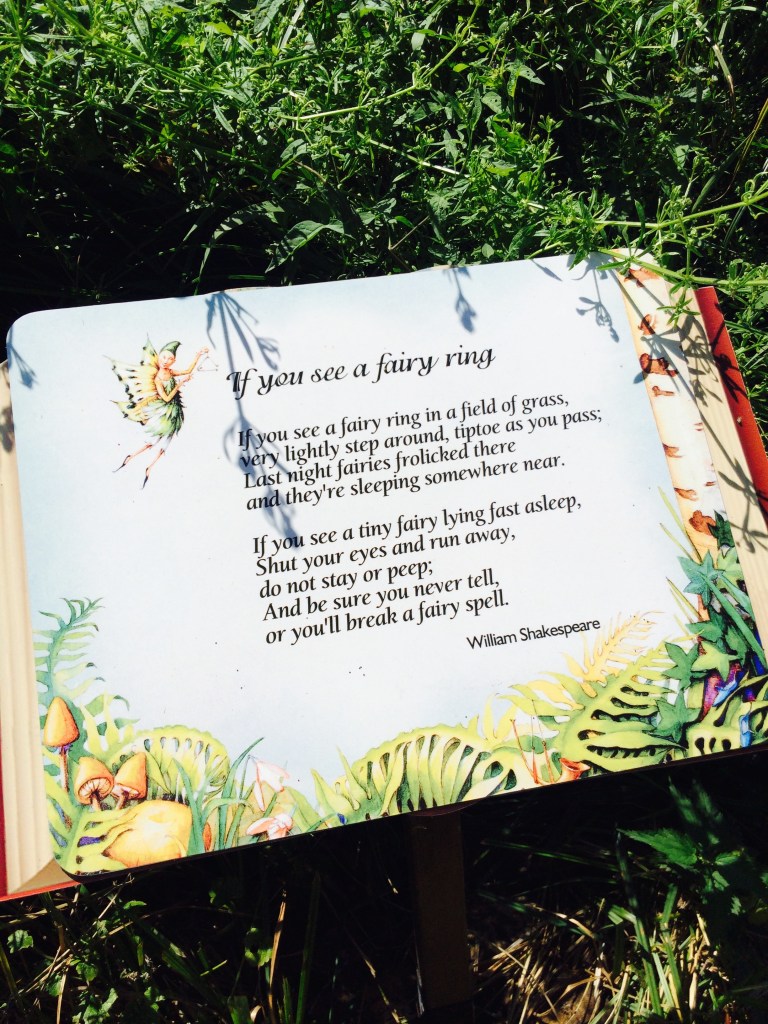 If you see a fairy ring
If you see a fairy ring in a field of grass,
very lightly step around, tiptoe as you pass;
Last night fairies frolicked there
and they're sleeping somewhere near.
If you see a tiny fairy lying fast asleep,
Shut your eyes and run away,
do not stay or peep;
And be sure you never tell,
or you'll break a fairy spell.
William Shakespeare